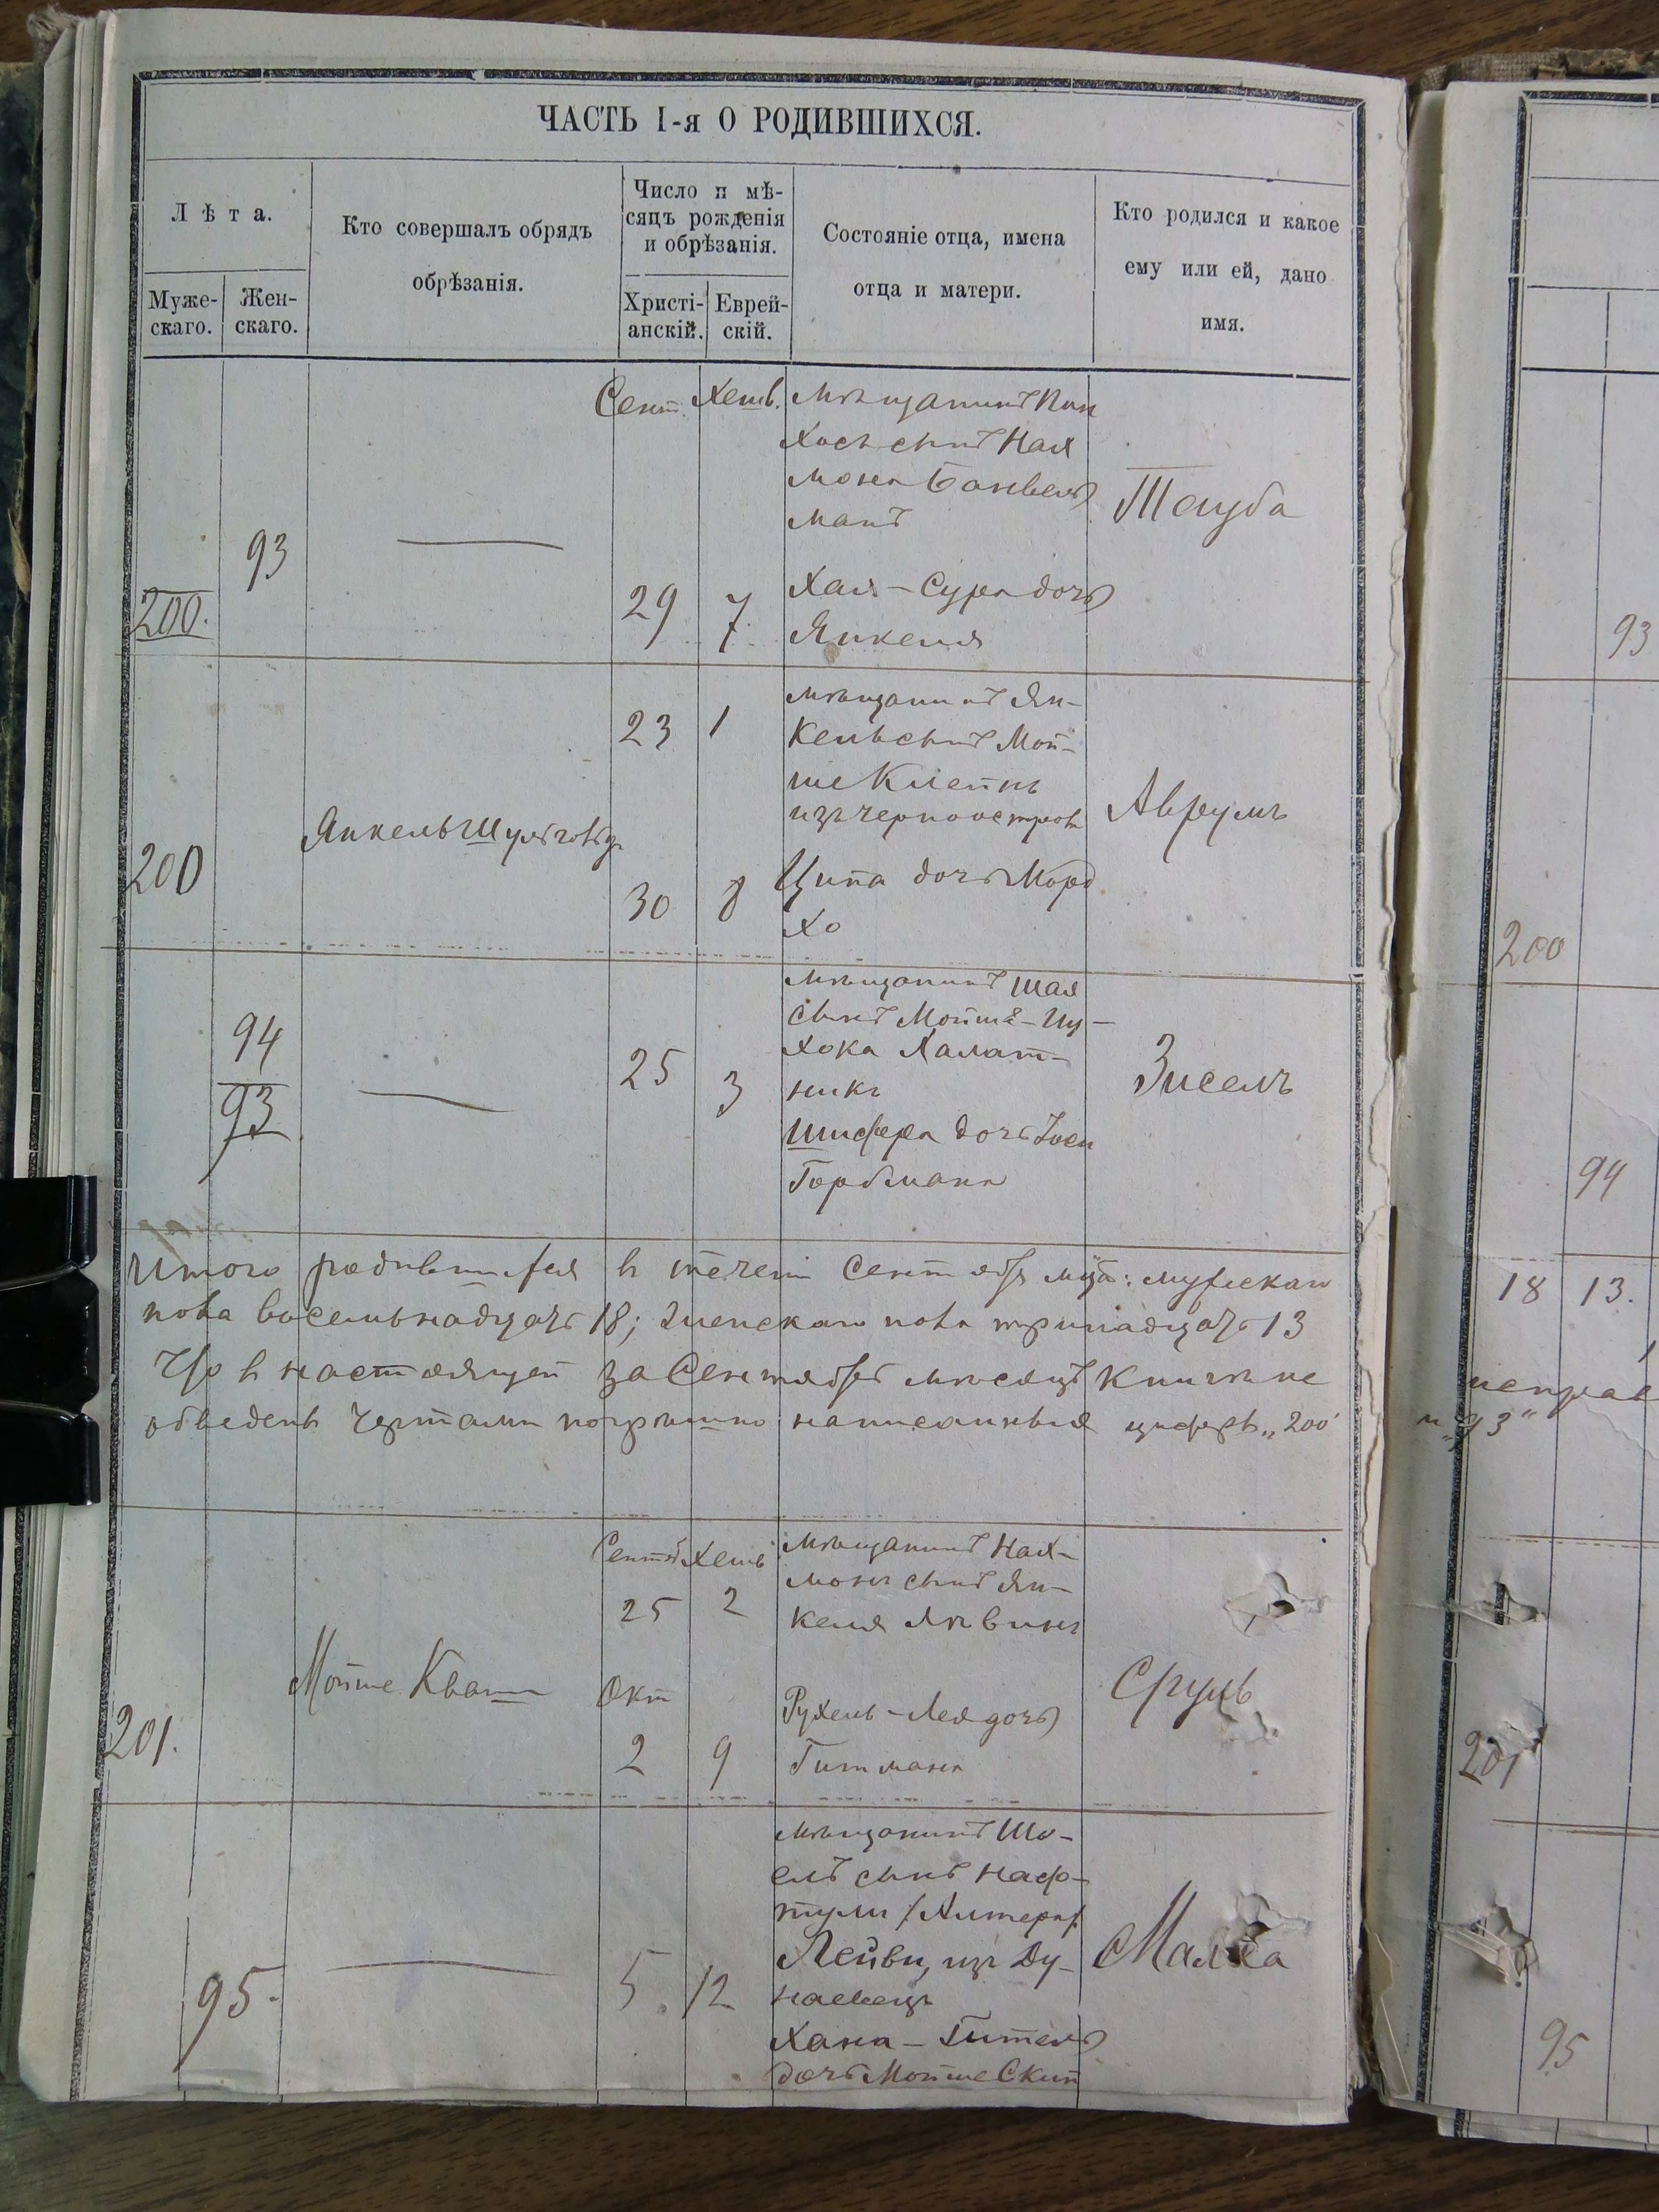 ЧАСТЬ I-я О РОДИВШИХСЯ.
Лѣта.
Муже-
скаго.
Жен-
скаго.
Кто совершалъ обрядъ
обрѣзанія.
Число и мѣ-
сяцъ рожденія
и обрѣзанія.
Христі-
анскій.
Еврей-
скій.
Состояніе отца, имена
отца и матери.
Кто родился и какое
ему или ей, дано
имя.
200.
93
Сент.
29
Хешв.
7.
Мѣщанинъ Пин
хосъ сынъ Нах
мона
манъ
Хая-Сура дочь
Янкеля
Тауба
200
Янкель
23
30
1
8
Мѣщанинъ Ян-
кель сынъ Мой-
ше Клейнъ
изъ черноостров
Ципа дочь Морд
хо
Аврумъ
94
93
25
3
Мѣщанинъ Шая
сынъ Мойше-Иц-
хока Халат-
никъ
Шифра дочь Иоси
Горбмана
Зисель
Итого родившихся в течени Сентябр м-ца: мужскаго
пола восемьнадцать 18; женскаго пола тринадцать 13
Что в настоящей за Сентябрь мѣсяцъ книгѣ не
обведенъ чертами погрѣшно написанныя цифръ „200"
201.
Мойше Кваша
Сентяб
25
Окт
2
Хешв
2
9
Мѣщанинъ Нах-
монъ сынъ Ян-
келя Лѣвинъ
Рухель-Лея дочь
Гитмана
Сруль
95.
5.
12
Мѣщанинъ Шо-
елъ сынъ Наф-
тули /Алтера/
Лейви, изъ Ду-
наевецъ
Хана-Гитель
дочь Мойше Скип
Малка
93
200
94
18 13.
неправ
и „93"
201
95